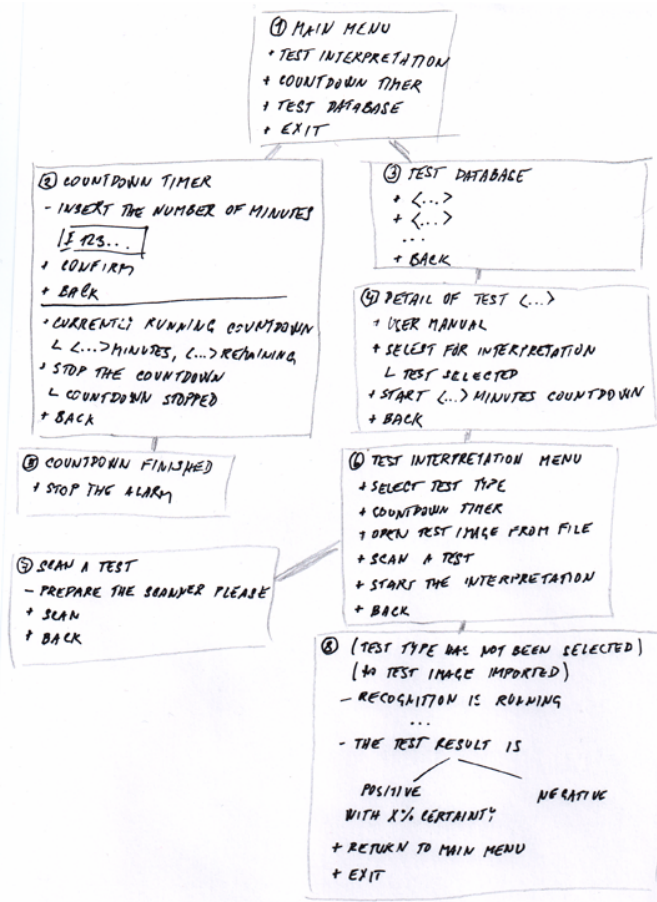 ① MAIN MENU
+ TEST INTERPRETATION
+ COUNTDOWN TIMER
+ TEST DATABASE
+ EXIT
② COUNTDOWN TIMER
- INSERT THE NUMBER OF MINUTES
I 123...
+ CONFIRM
+ BACK
+ CURRENTLY RUNNING COUNTDOWN
L <...> MINUTES, <...> REMAINING
+ STOP THE COUNTDOWN
L COUNTDOWN STOPPED
+ BACK
③ TEST DATABASE
+ <...>
+ <...>
...
+ BACK
④ DETAIL OF TEST <...>
+ USER MANUAL
+ SELECT FOR INTERPRETATION
L TEST SELECTED
+ START <...> MINUTES COUNTDOWN
+ BACK
⑤ COUNTDOWN FINISHED
+ STOP THE ALARM
⑥ TEST INTERPRETATION MENU
+ SELECT TEST TYPE
+ COUNTDOWN TIMER
+ OPEN TEST IMAGE FROM FILE
+ SCAN A TEST
+ START THE INTERPRETATION
+ BACK
⑦ SCAN A TEST
- PREPARE THE SCANNER PLEASE
+ SCAN
+ BACK
⑧ (TEST TYPE HAS NOT BEEN SELECTED)
(NO TEST IMAGE IMPORTED)
- RECOGNITION IS RUNNING
...
- THE TEST RESULT IS
POSITIVE NEGATIVE
WITH X% CERTAINTY
+ RETURN TO MAIN MENU
+ EXIT